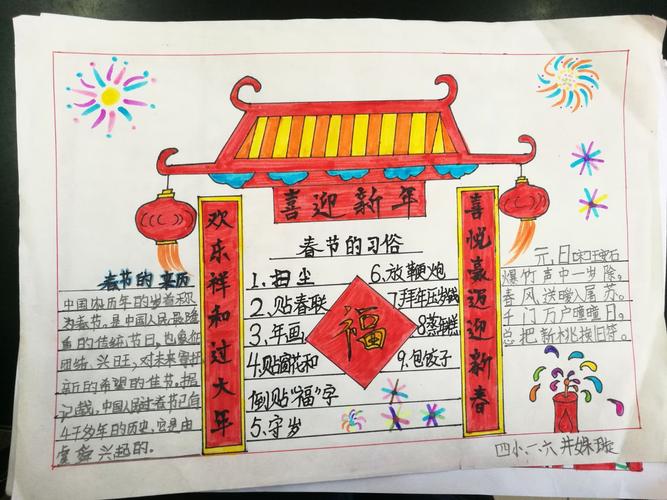 喜迎新年
欢乐祥和过大年
喜悦豪迈迎新春
春节的来历
中国农历年的岁首称
为春节。是中国人民最隆
重的传统节日。也象征
团结、兴旺,对未来寄托
新的希望的佳节。据
记载,中国人民过春节已有
4千多年的历史,它是由
虞舜兴起的。
春节的习俗
1、扫尘
2、贴春联
3、年画
4、贴窗花和
倒贴"福"字
5、守岁
6、放鞭炮
7、拜年压岁钱
8、蒸年糕
9、包饺子
福
元,日
爆竹声中一岁除。
春风送暖入屠苏。
千门万户曈曈日。
总把新桃换旧符。
四小、一、六 井姝璇